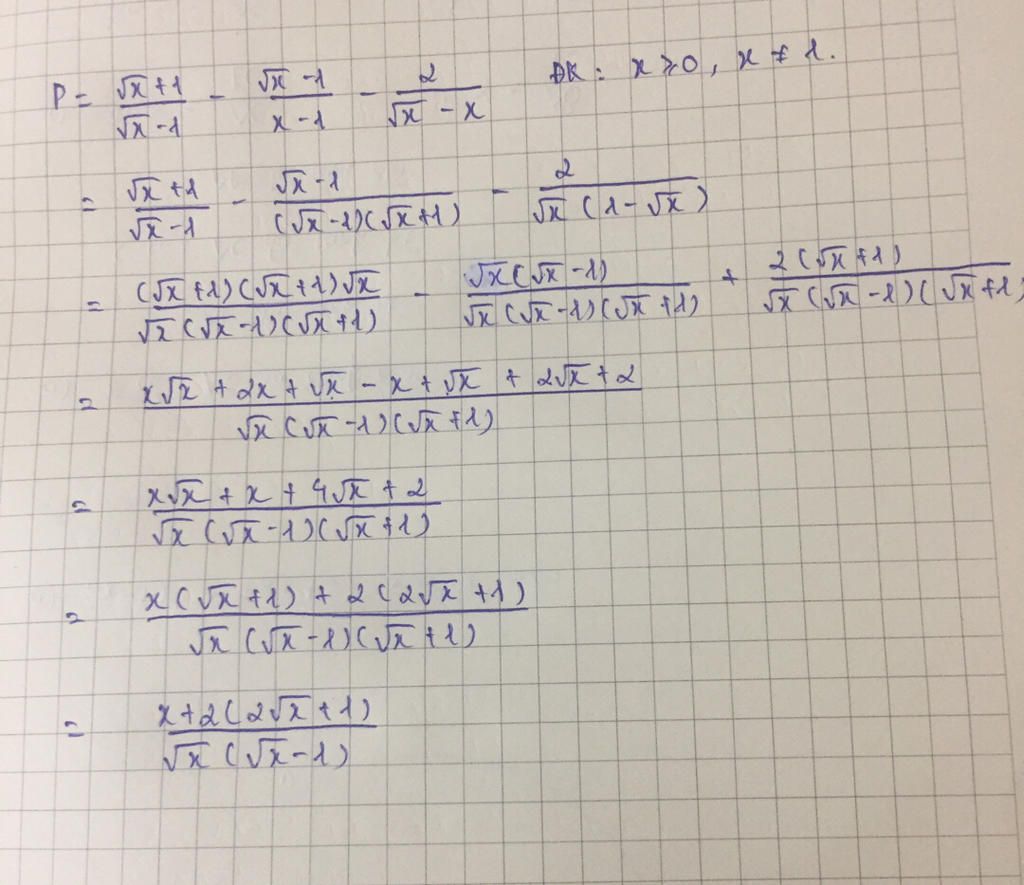 P = (√x + 1)/(√x - 1) - (√x - 1)/(x - 1) - 2/(√x - x) ĐK : x ⩾ 0 , x ≠ 1.
= (√x + 1)/(√x - 1) - (√x - 1)/((√x - 1)(√x + 1)) - 2/(√x (1 - √x))
= ((√x + 1)(√x + 1)√x)/(√x (√x - 1)(√x + 1)) - (√x(√x - 1))/(√x (√x - 1)(√x + 1)) + (2(√x + 1))/(√x (√x - 1)(√x + 1))
= (x√x + 2x + √x - x + √x + 2√x + 2)/(√x (√x - 1)(√x + 1))
= (x√x + x + 4√x + 2)/(√x (√x - 1)(√x + 1))
= (x(√x + 1) + 2(2√x + 1))/(√x (√x - 1)(√x + 1))
= (x + 2(2√x + 1))/(√x (√x - 1))